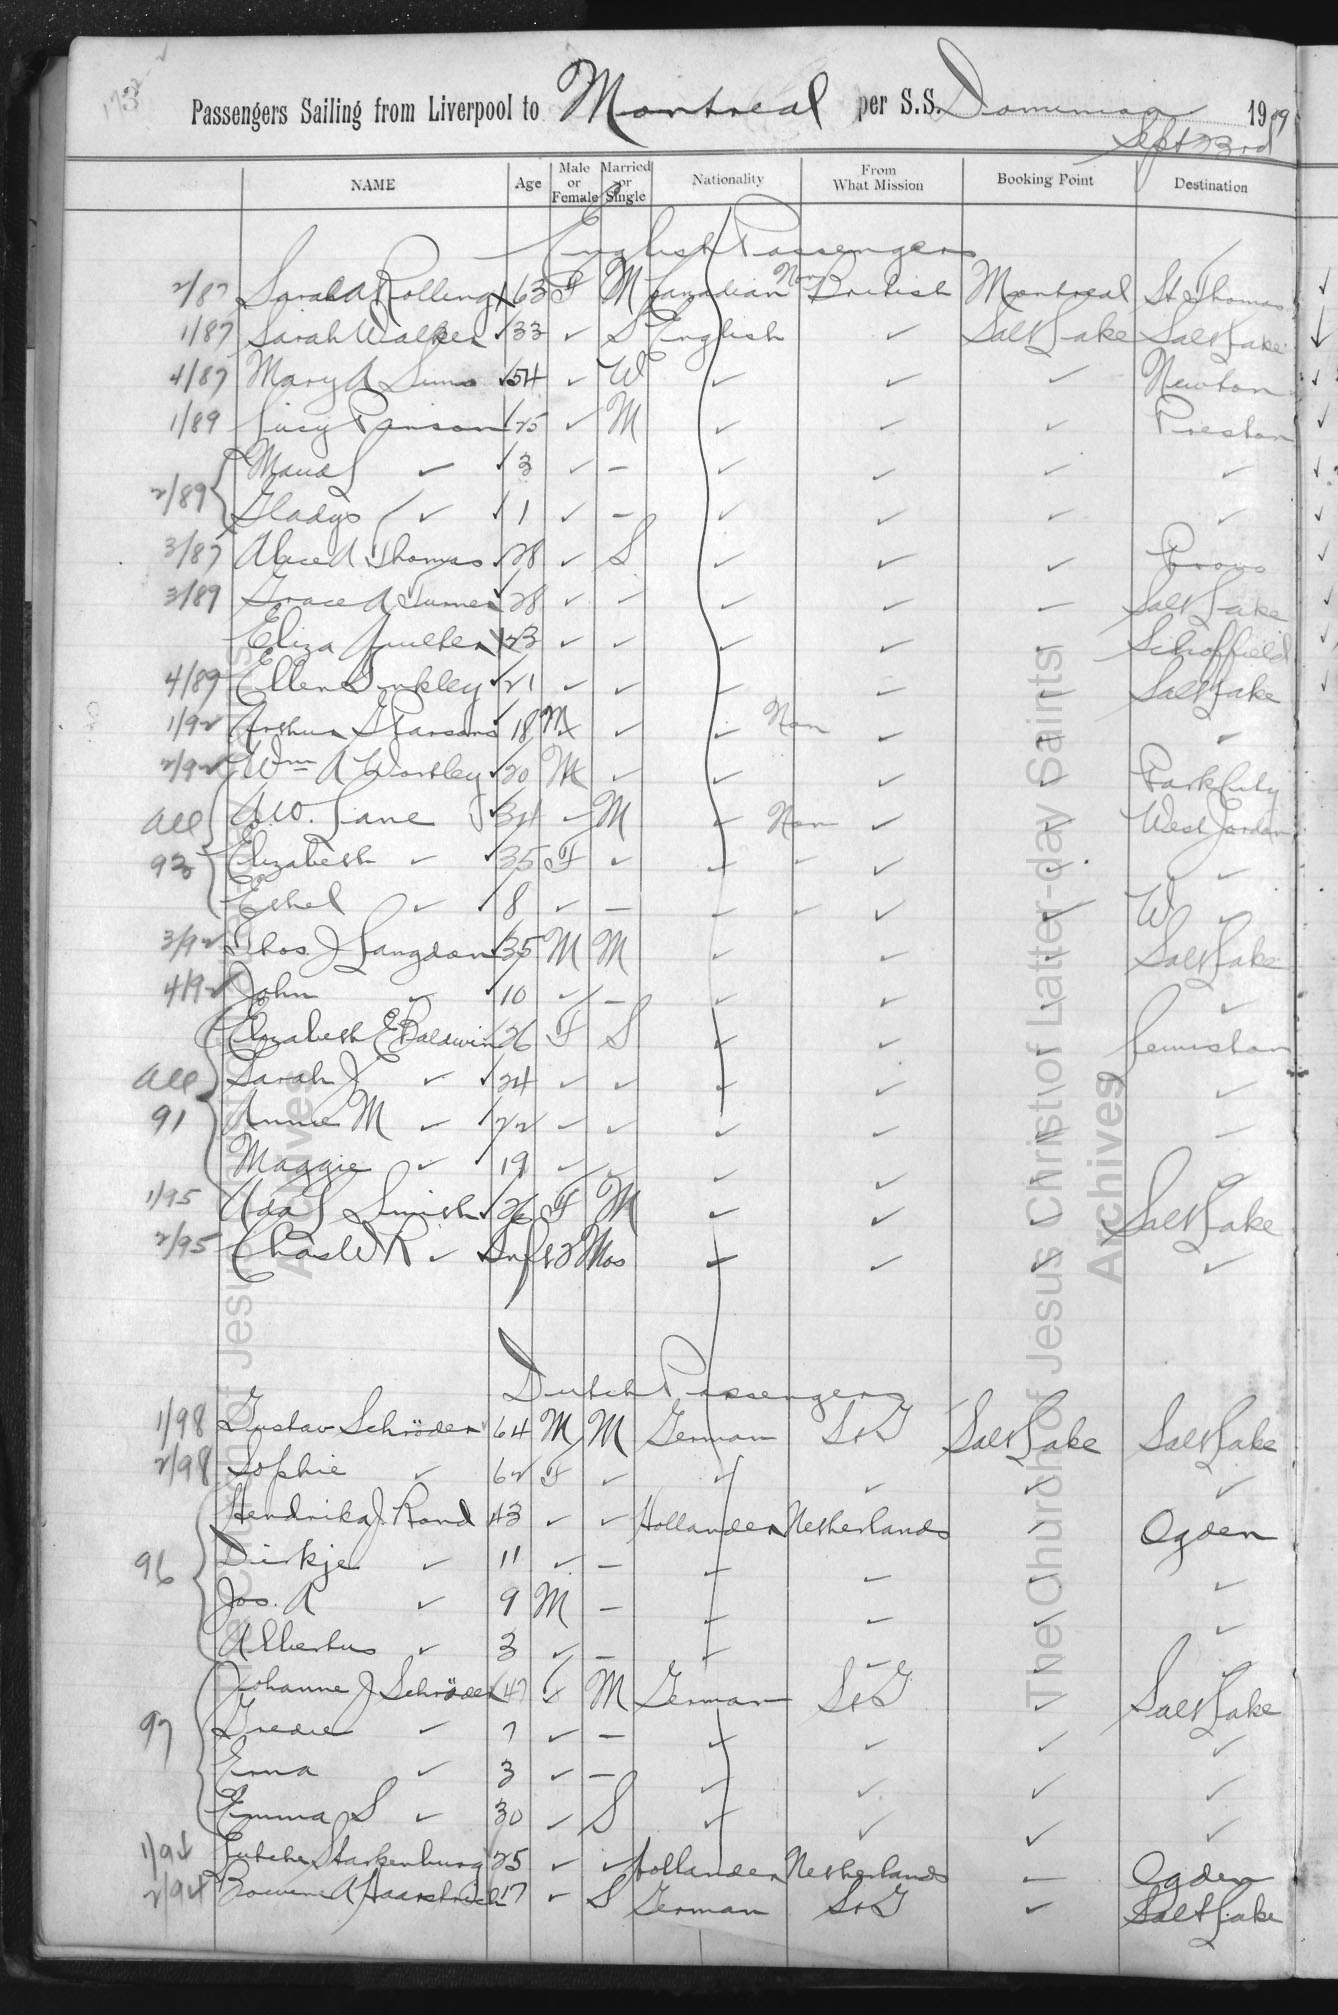 Passengers Sailing from Liverpool to Montreal per S.S. Dominion 1909
Sept 23rd
NAME Age Male or Female Married or Single Nationality From What Mission Booking Point Destination
English Passengers
2/87 Sarah A Rollings 63 F M Canadian Non British Montreal St Thomas
1/87 Sarah Walker 33 ✓ S English ✓ Salt Lake Salt Lake
4/87 Mary A Sims 54 ✓ W ✓ ✓ ✓ Newton
1/89 Lucy Ranson 25 ✓ M ✓ ✓ ✓ Preston
2/89 Maud L ✓ 3 ✓ – ✓ ✓ ✓ ✓
Gladys ✓ 1 ✓ – ✓ ✓ ✓ ✓
3/87 Alice A Thomas 28 ✓ S ✓ ✓ ✓ Provo
3/89 Grace A Turner 28 ✓ ✓ ✓ ✓ ✓ Salt Lake
Eliza 23 ✓ ✓ ✓ ✓ ✓ Schoffield
4/89 Ellen Dinkley 21 ✓ ✓ ✓ ✓ ✓ Salt Lake
1/92 Arthur G Parsons 18 M ✓ ✓ Non ✓ ✓ ✓
2/92 Wm A Wortley 20 M ✓ ✓ ✓ ✓ Park City
All 93 A.W. Lane 34 ✓ M ✓ Non ✓ ✓ West Jordan
Elizabeth ✓ 35 F ✓ ✓ ✓ ✓ ✓ ✓
Ethel ✓ 8 ✓ – ✓ ✓ ✓ ✓ W ✓
3/92 Thos. J Langdon 35 M M ✓ ✓ ✓ Salt Lake
4/92 John ✓ 10 ✓ – ✓ ✓ ✓ ✓
All 91 Elizabeth E Baldwin 26 F S ✓ ✓ ✓ Lewiston
Sarah J ✓ 24 ✓ ✓ ✓ ✓ ✓ ✓
Annie M ✓ 22 ✓ ✓ ✓ ✓ ✓ ✓
Maggie ✓ 19 ✓ ✓ ✓ ✓ ✓ ✓
1/95 Ada L Smith 26 F M ✓ ✓ ✓ Salt Lake
2/95 Chas W R ✓ Inft 3 Mos ✓ ✓ ✓ ✓
Dutch Passengers
1/98 Gustav Schröder 64 M M German S&G Salt Lake Salt Lake
2/98 Sophie ✓ 62 F ✓ ✓ ✓ ✓ ✓
96 Hendrika J. Rond 43 ✓ ✓ Hollander Netherlands ✓ Ogden
Dirkje ✓ 11 ✓ – ✓ ✓ ✓ ✓
Jos. A ✓ 9 M – ✓ ✓ ✓ ✓
Albertus ✓ 3 ✓ – ✓ ✓ ✓ ✓
97 Johanne J Schröder 47 ✓ M German S&G ✓ Salt Lake
Gredie ✓ 7 ✓ – ✓ ✓ ✓ ✓
Erna ✓ 3 ✓ – ✓ ✓ ✓ ✓
Emma S ✓ 30 ✓ S ✓ ✓ ✓ ✓
1/94 Starkenburg 25 ✓ ✓ Hollander Netherlands ✓ Ogden
2/94 17 ✓ S German S&G ✓ Salt Lake
The Church of Jesus Christ of Latter-day Saints
Archives